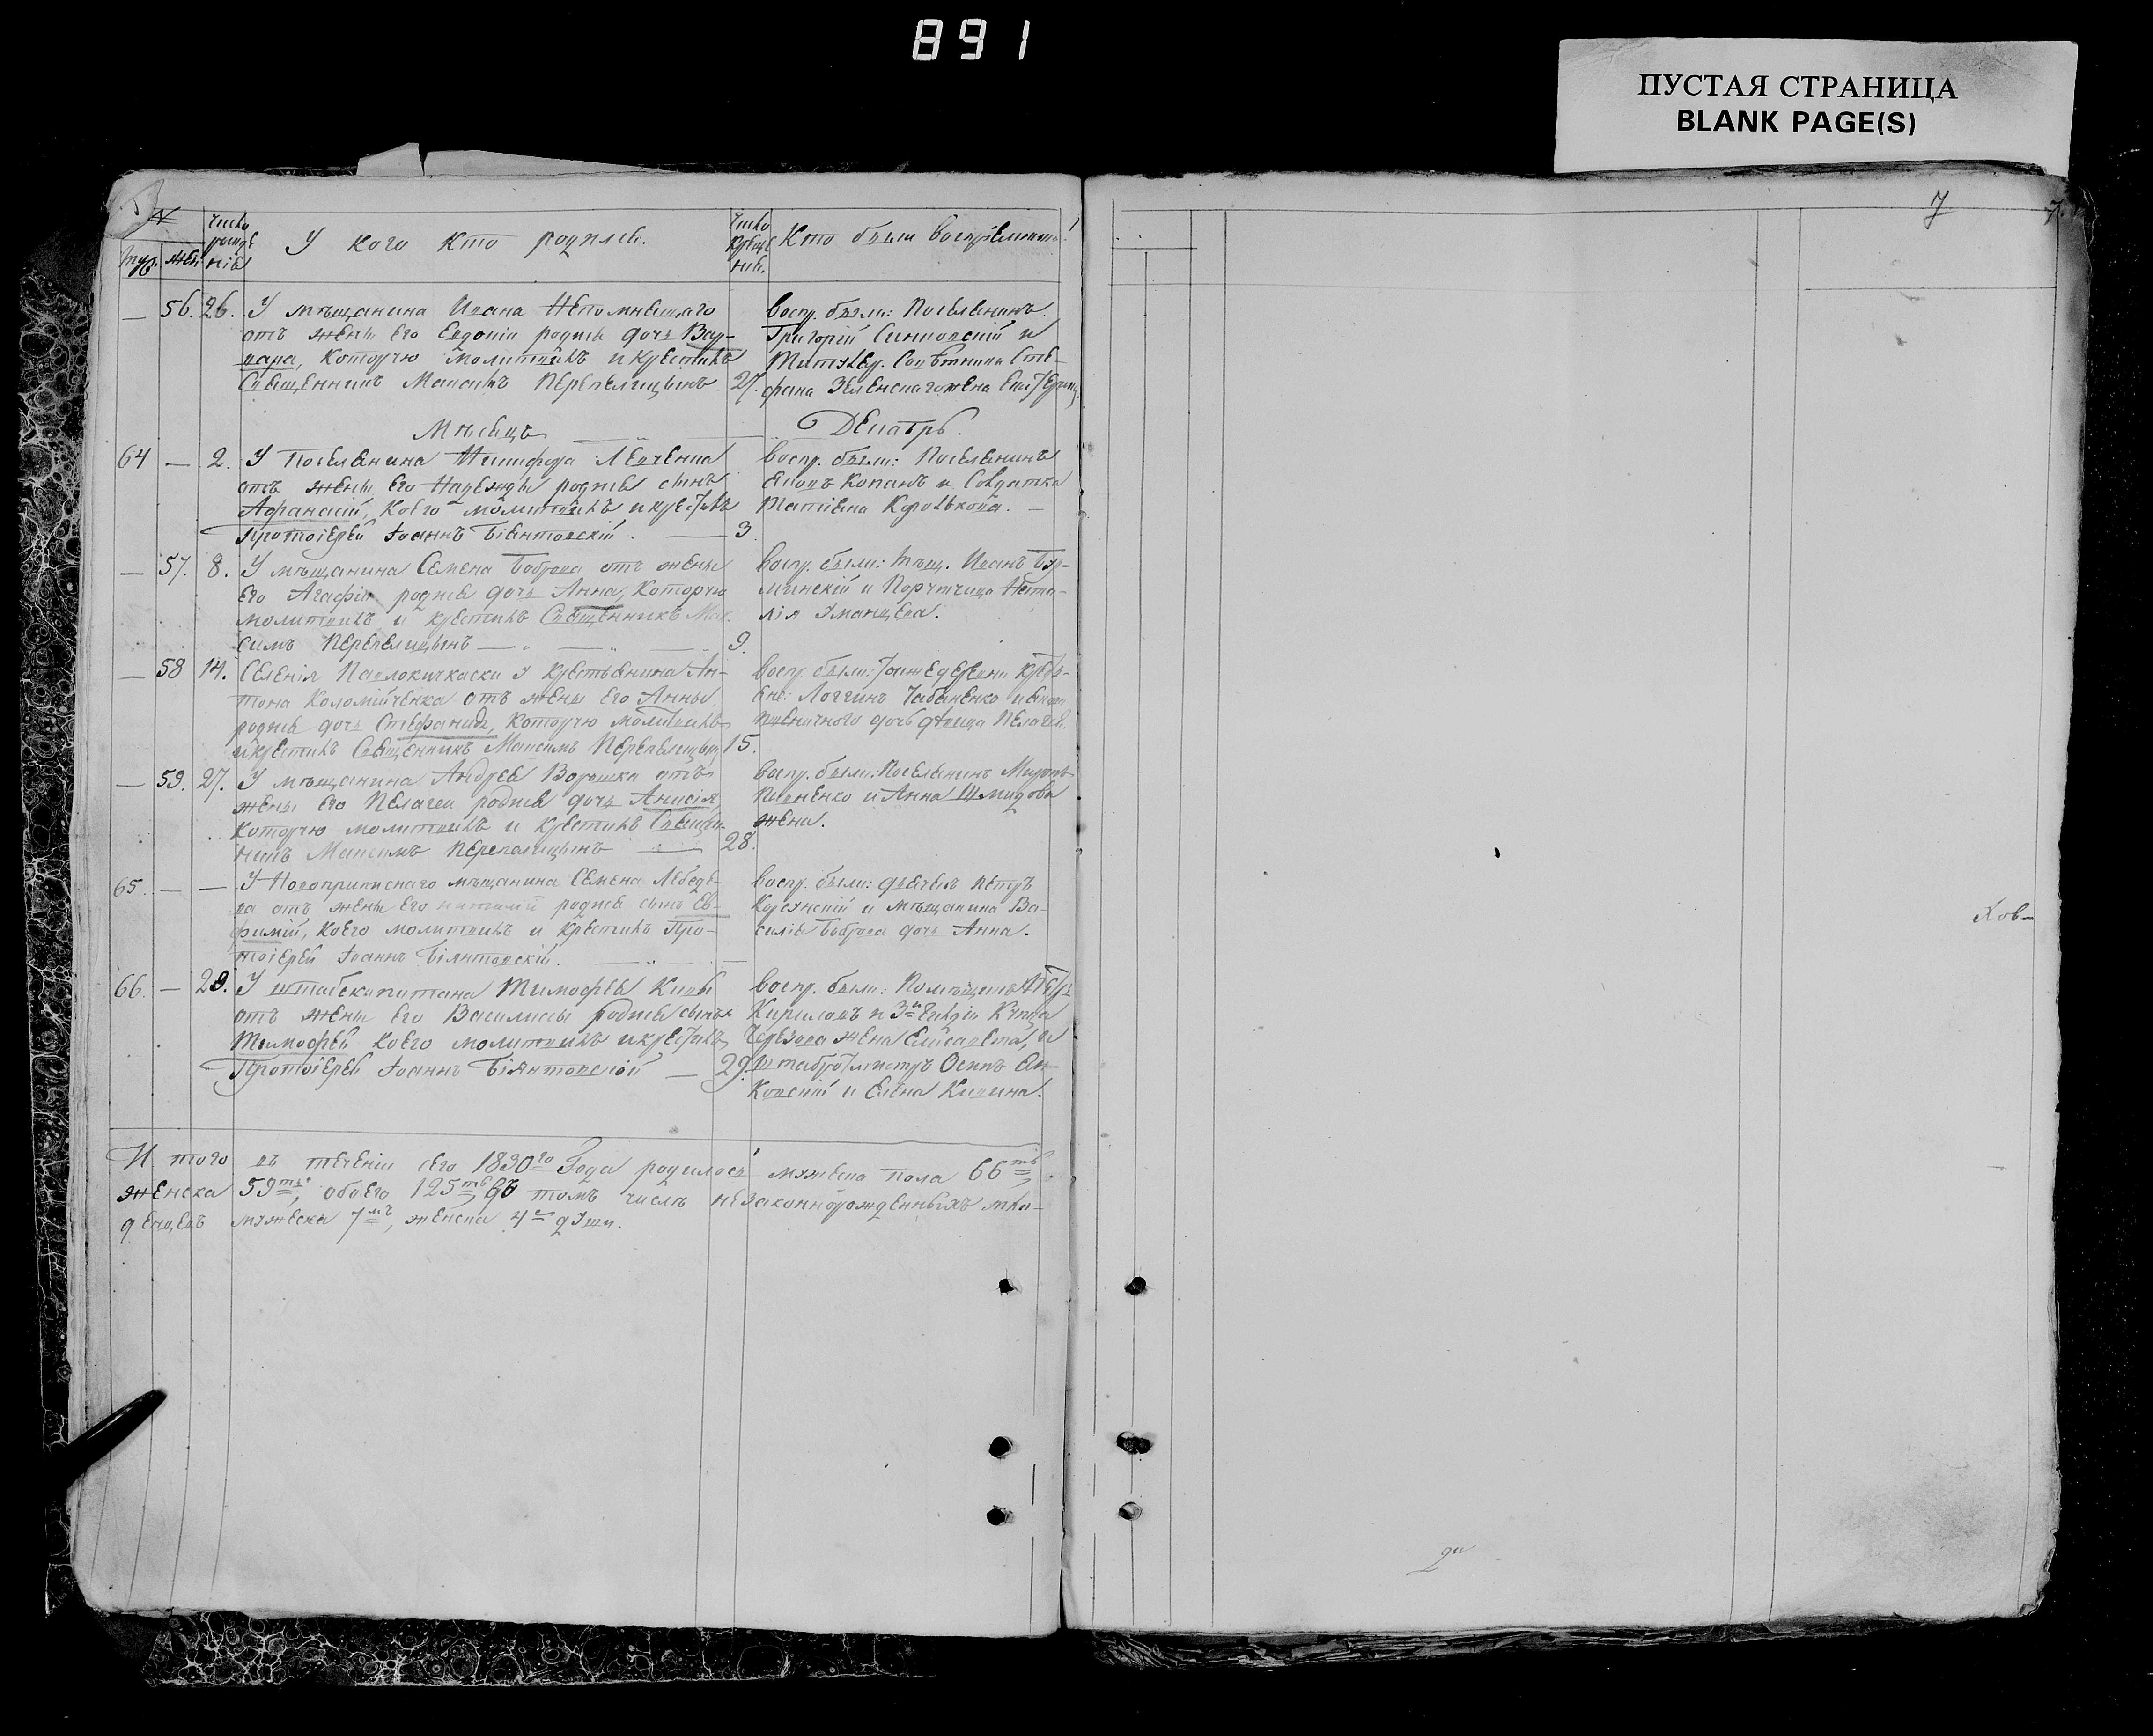 891
ПУСТАЯ СТРАНИЦА
BLANK PAGE(S)
7
№
Число рождені́я
У кого кто родился.
Число крещенія
Кто были воспріемники.
муж. жен.
— 56. 26. У мѣщанина Ивана Непомнящаго
отъ жены его Евдокіи родися дочь Вар-
вара, которую молитвилъ и крестилъ
Священникъ Максимъ Перепелицынъ 27.
Воспр. были: Поселянинъ
Григорій и
Титуляр. Совѣтника Сте-
фана Зеленскаго жена
Мѣсяцъ Декабрь.
64 — 2. У Поселянина Никифора Левченка
отъ жены его Надежды родися сынъ
Афанасій, коего молитвилъ и крестилъ
Протоіерей Іоаннъ Біянтовскій. — 3
Воспр. были: Поселянинъ
Яковъ Копанъ и Солдатка
Татіана Королькова. —
— 57. 8. У мѣщанина Семена Боброва отъ жены
его Агафіи родися дочь Анна, которую
молитвилъ и крестилъ Священникъ Мак-
симъ Перепелицынъ — 9.
Воспр. были: мѣщ. Иванъ
и Порутчица Ната-
лія Уманцева.
— 58 14. Селенія Павлокичкаски у крестьянина Ан-
тона Коломійченка отъ жены его Анны
родися дочь Стефанида, которую молитвилъ
и крестилъ Священникъ Максимъ Перепелицын 15.
Воспр. были: тойже деревни крест-
Логгинъ Чабаненко и
Пшеничного дочь дѣвица Пелагея.
— 59. 27. У мѣщанина Андрея Ворошка отъ
жены его Пелагеи родися дочь Анисія,
которую молитвилъ и крестилъ Священ-
никъ Максимъ Перепелицынъ — 28.
Воспр. были: Поселянинъ Миронъ
и Анна Шмидова
жена.
65. — — У Новоприписнаго мѣщанина Семена Лебеде-
ва отъ жены его Наталіи родися сынъ Ев-
фимій, коего молитвилъ и крестилъ Про-
тоіерей Іоаннъ Біянтовскій. —
Воспр. были: дьячекъ Петръ
Корсунскій и мѣщанина Ва-
силія Боброва дочь Анна.
66. — 29. У штабскапитана Тимофея Кивы
отъ жены его Василисы родися сынъ
Тимофей коего молитвилъ и крестилъ
Протоіерей Іоаннъ Біянтовскій — 29.
Воспр. были: Помѣщикъ Петръ
Кириловъ и 3й Гильдіи Купца
жена Елисавета, и
Штабротмистръ Осипъ Ян-
ковскій и Елена Кивина.
И того въ теченіи сего 1830го Года родилось мужеска пола 66ть,
женска 59ть, обоего 125ть въ томъ числѣ незаконнорожденныхъ мла-
денцевъ мужеска 7мъ, женска 4е души.
Ков—